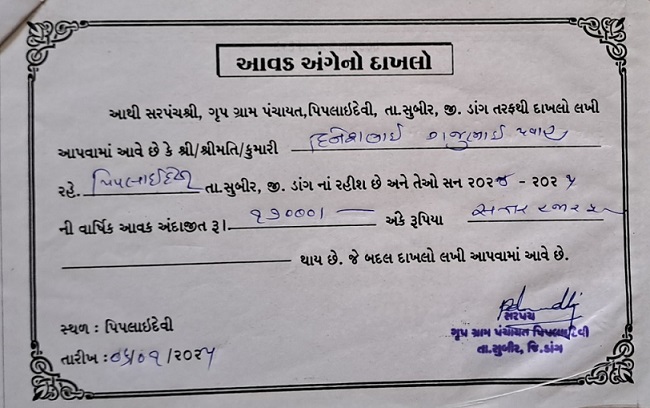 આવક અંગેનો દાખલો
આથી સરપંચશ્રી, ગૃપ ગ્રામ પંચાયત,પિપલાઇદેવી, તા.સુબીર, જી. ડાંગ તરફથી દાખલો લખી
આપવામાં આવે છે કે શ્રી/શ્રીમતિ/કુમારી દિનેશભાઈ
રહે. પિપલાઈદેવી તા.સુબીર, જી. ડાંગ નાં રહીશ છે અને તેઓ સન ૨૦૨૪ - ૨૦૨૫
ની વાર્ષિક આવક અંદાજીત રૂ।. ૧૭૦૦૦। અંકે રૂપિયા
થાય છે. જે બદલ દાખલો લખી આપવામાં આવે છે.
સ્થળ : પિપલાઇદેવી
તારીખ : /૦૧/૨૦૨૫
સરપંચ
ગૃપ ગ્રામ પંચાયત પિપલાઈદેવી
તા.સુબીર, જિ.ડાંગ